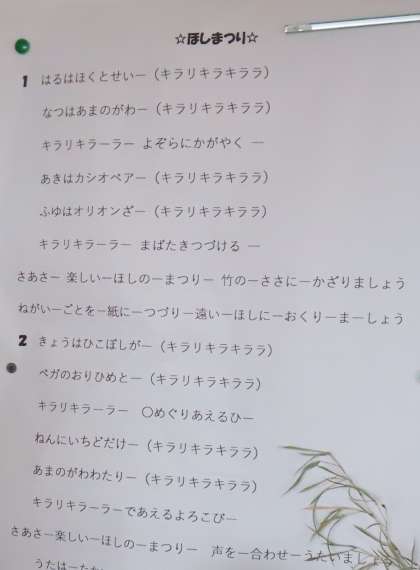 ☆ほしまつり☆
1 はるはほくとせいー（キラリキラキララ）
なつはあまのがわー（キラリキラキララ）
キラリキラーラー よぞらにかがやく ー
あきはカシオペアー（キラリキラキララ）
ふゆはオリオンざー（キラリキラキララ）
キラリキラーラー まばたきつづける ー
さあさー 楽しいーほしのーまつりー 竹のーささにーかざりましょう
ねがいーごとをー紙にーつづりー遠いーほしにーおくりーまーしょう
2 きょうはひこぼしがー（キラリキラキララ）
ベガのおりひめとー（キラリキラキララ）
キラリキラーラー 〇めぐりあえるひー
ねんにいちどだけー（キラリキラキララ）
あまのがわわたりー（キラリキラキララ）
キラリキラーラーであえるよろこびー
さあさー楽しいーほしのーまつりー 声をー合わせーうたいましょう
うたはー